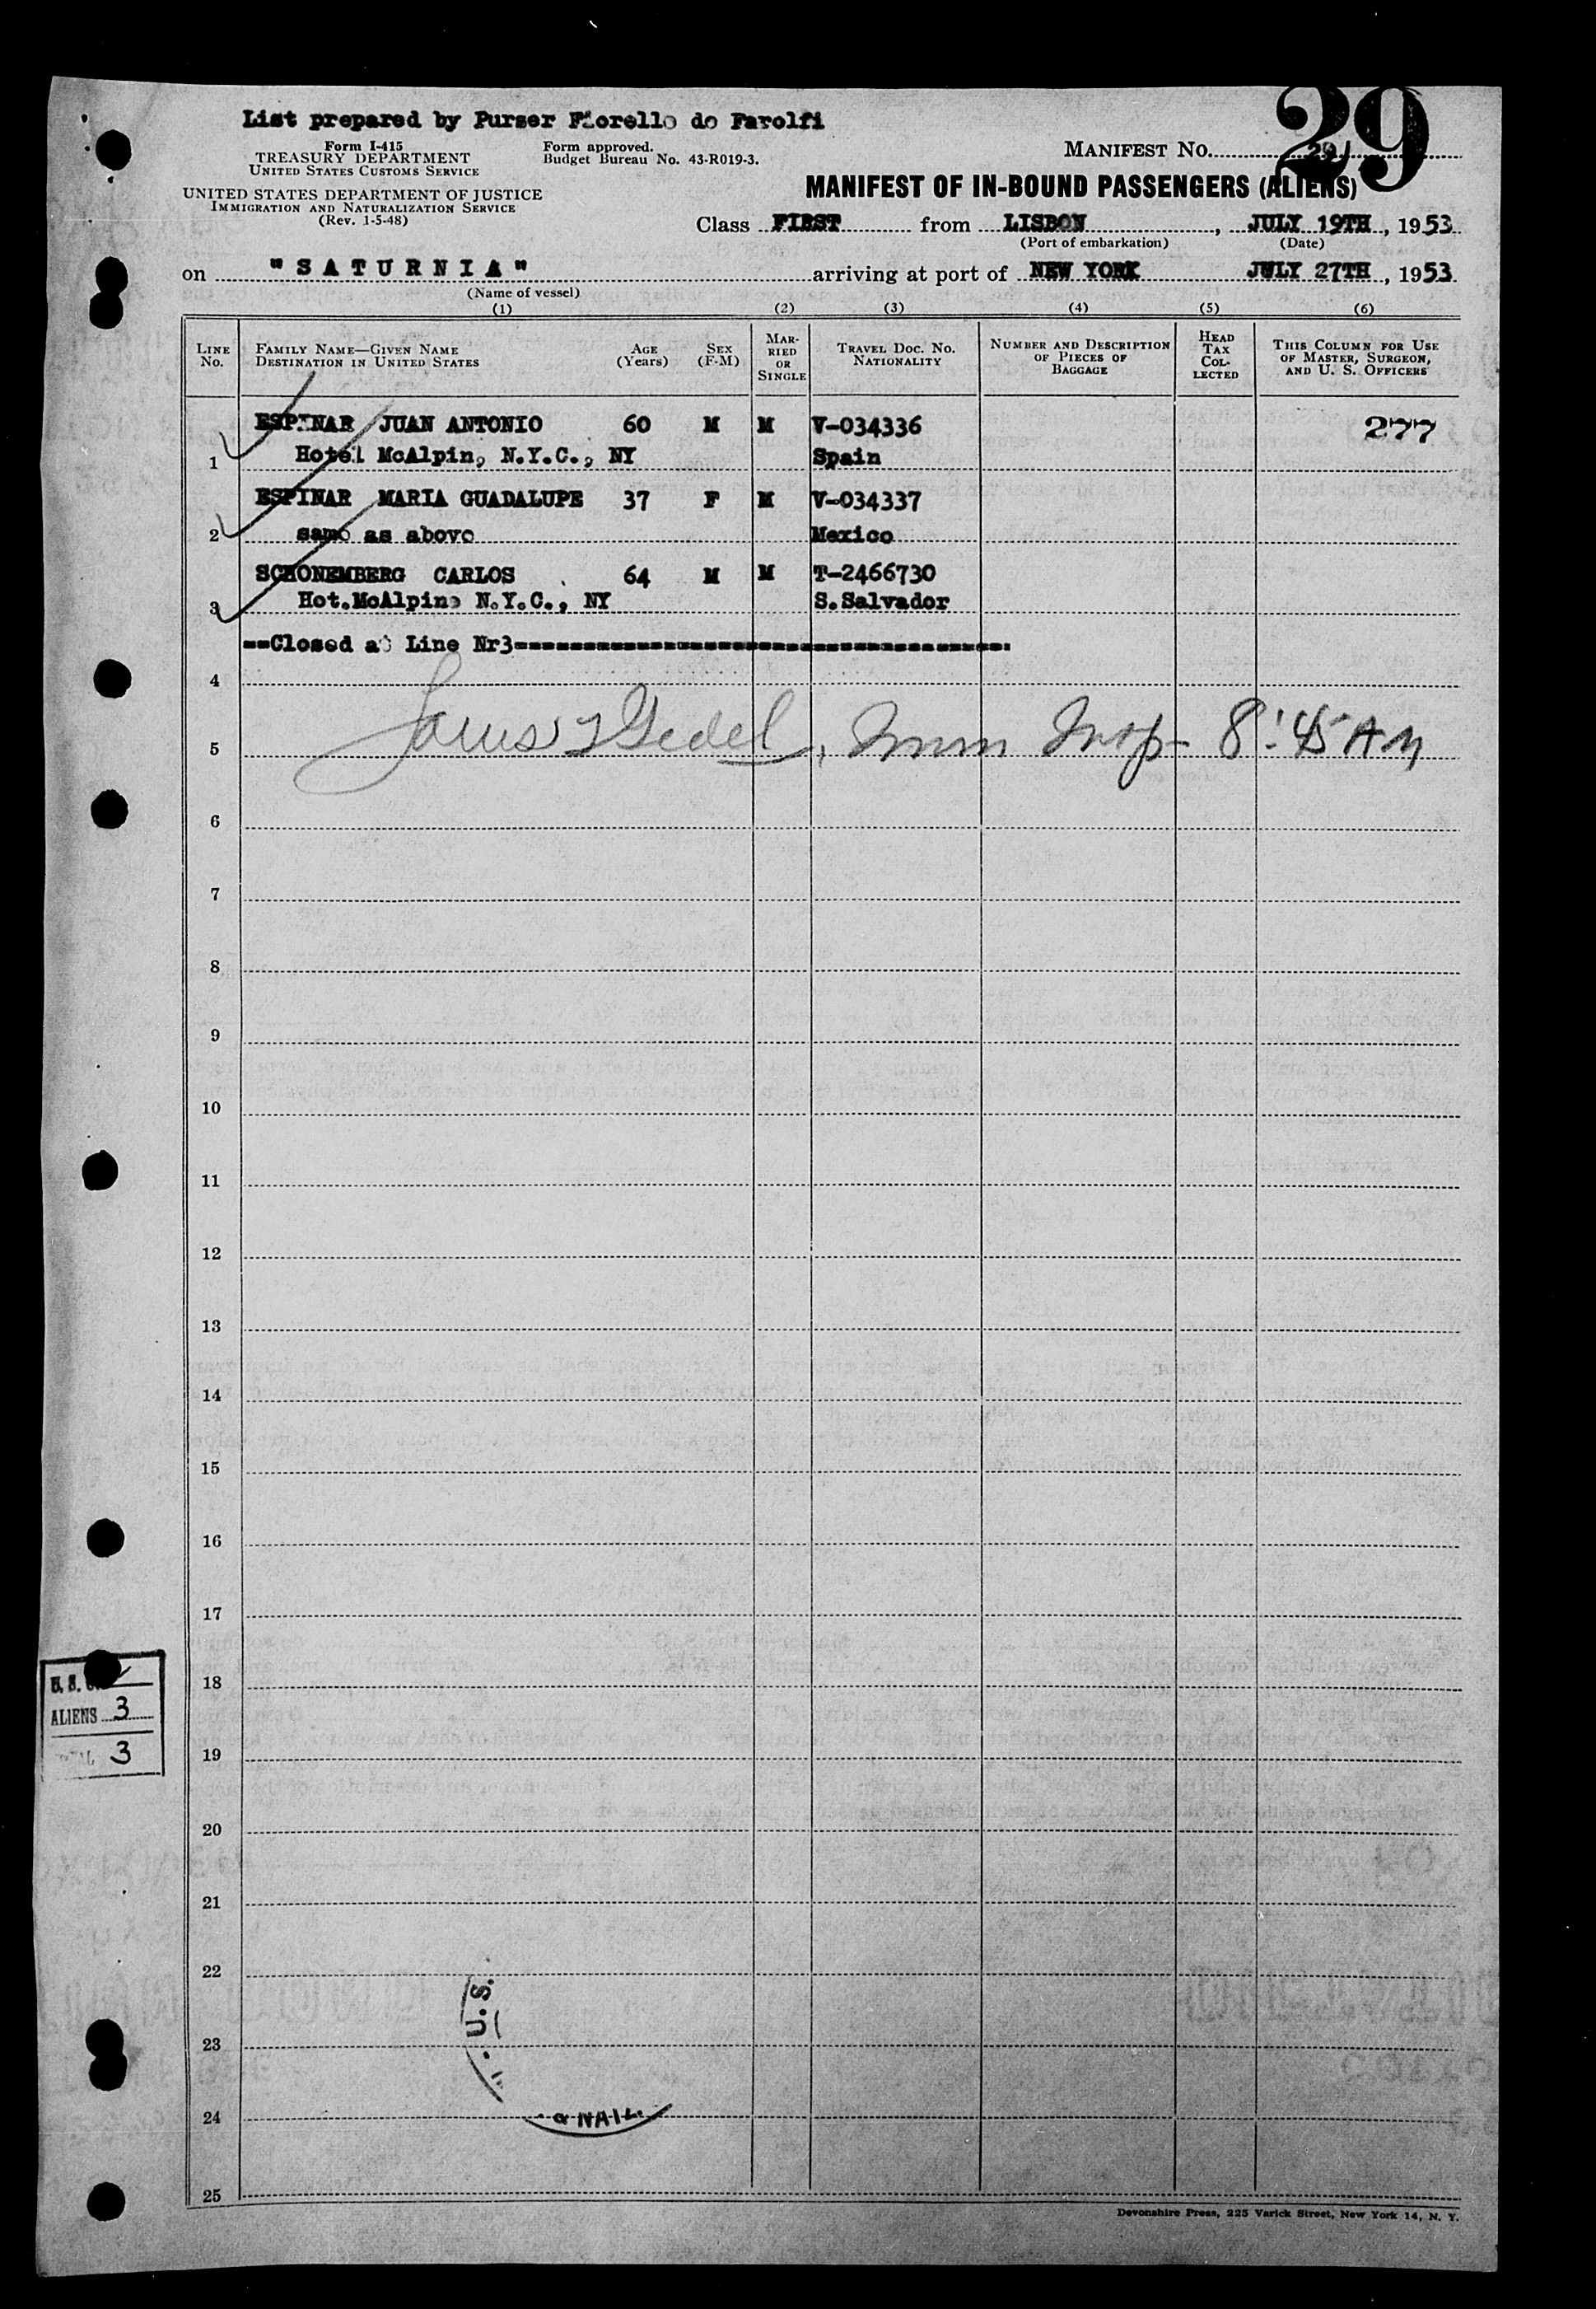 29
List prepared by Purser Fiorello de Farolfi
Form I-415
TREASURY DEPARTMENT
UNITED STATES CUSTOMS SERVICE
Form approved.
Budget Bureau No. 43-R019-3.
MANIFEST NO. 29
UNITED STATES DEPARTMENT OF JUSTICE
IMMIGRATION AND NATURALIZATION SERVICE
(Rev. 1-5-48)
MANIFEST OF IN-BOUND PASSENGERS (ALIENS)
Class FIRST from LISBON, JULY 19TH, 1953
(Port of embarkation) (Date)
on "SATURNIA" arriving at port of NEW YORK JULY 27TH, 1953
(Name of vessel)
(1) (2) (3) (4) (5) (6)
LINE No. FAMILY NAME—GIVEN NAME DESTINATION IN UNITED STATES AGE (Years) SEX (F-M) MARRIED OR SINGLE TRAVEL DOC. NO. NATIONALITY NUMBER AND DESCRIPTION OF PIECES OF BAGGAGE HEAD TAX COLLECTED THIS COLUMN FOR USE OF MASTER, SURGEON, AND U. S. OFFICERS
ESPINAR JUAN ANTONIO 60 M M V-034336 277
1 Hotel McAlpin, N.Y.C., NY Spain
ESPINAR MARIA GUADALUPE 37 F M V-034337
2 same as above Mexico
SCHONEMBERG CARLOS 64 M M T-2466730
3 Hot.McAlpine N.Y.C., NY S.Salvador
==Closed at Line Nr3==========================================
4
5 Imm Insp 8:45 AM
6
7
8
9
10
11
12
13
14
15
16
17
18
19
20
21
22
23
24
25
U. S.
ALIENS 3
TOTAL 3
U.S.
Devonshire Press, 225 Varick Street, New York 14, N. Y.